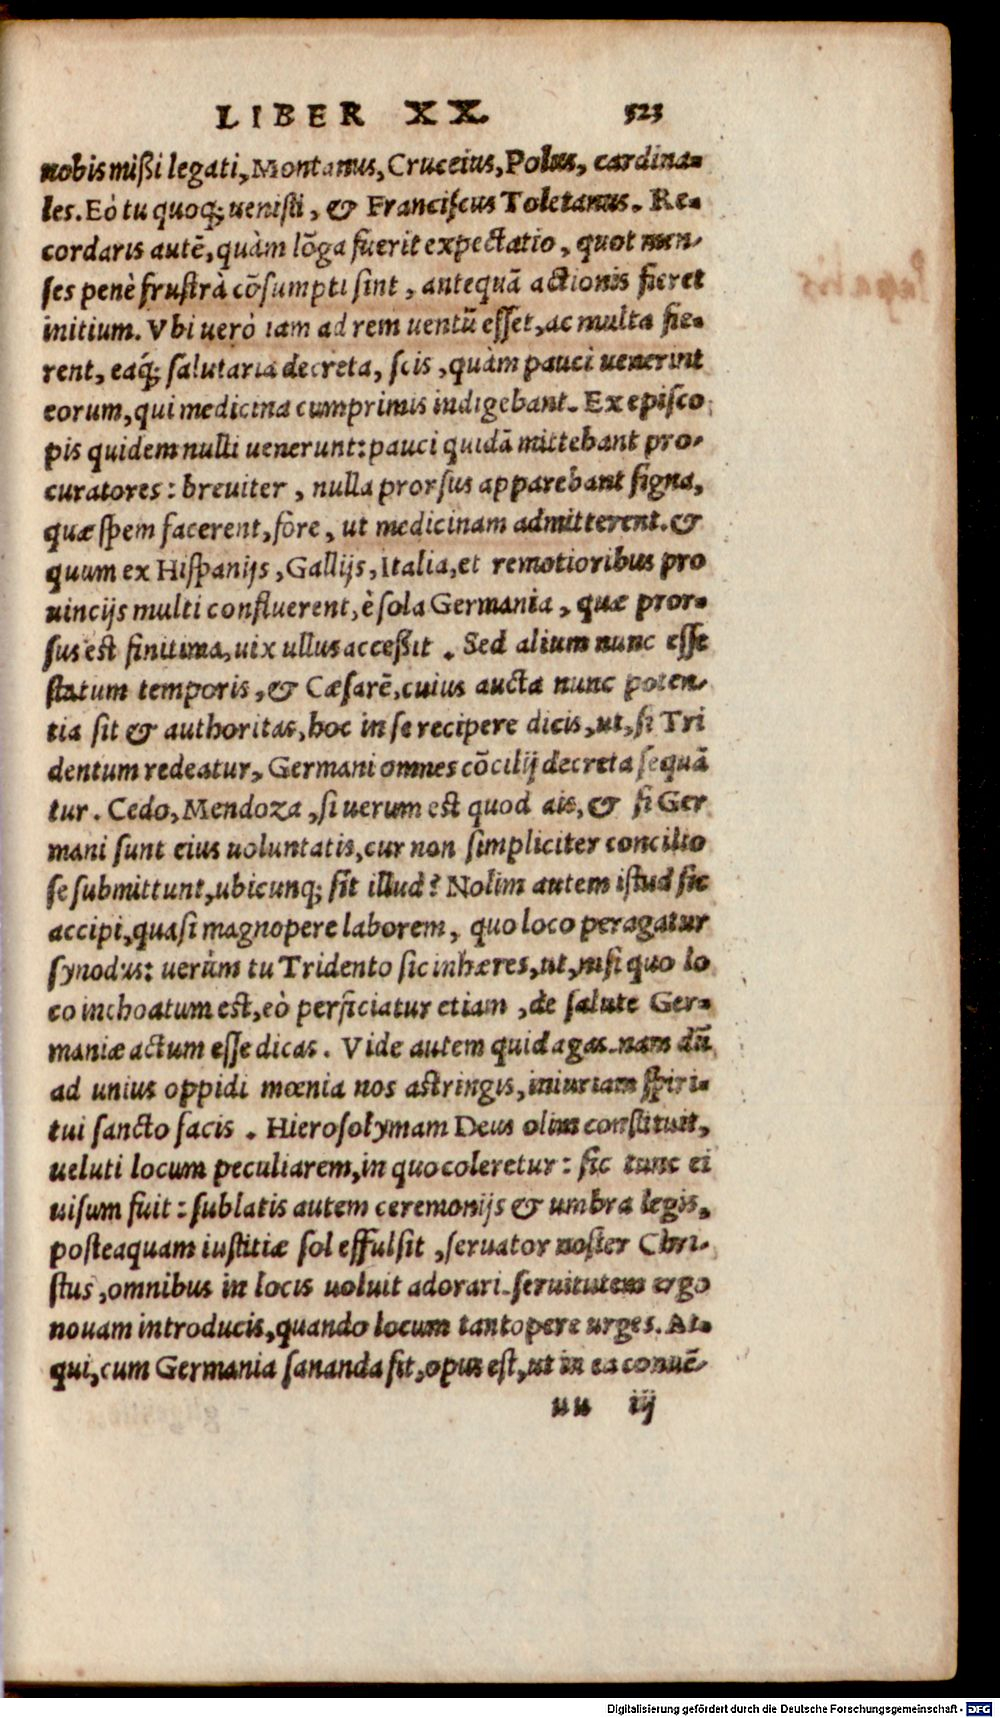 LIBER XX. 523
nobis mißi legati, Montanus, Cruceius, Polus, cardina-
les. Eò tu quoq; uenisti, & Franciscus Toletanus. Re-
cordaris autē, quàm lōga fuerit expectatio, quot men-
ses penè frustrà cōsumpti sint, antequā actionis fieret
initium. Vbi uerò iam ad rem uentū esset, ac multa fie-
rent, eaq́; salutaria decreta, scis, quàm pauci uenerint
eorum, qui medicina cumprimis indigebant. Ex episco
pis quidem nulli uenerunt: pauci quidā mittebant pro-
curatores: breuiter, nulla prorsus apparebant signa,
quæ spem facerent, fore, ut medicinam admitterent. &
quum ex Hispanijs, Gallijs, Italia, et remotioribus pro
uincijs multi confluerent, è sola Germania, quæ pror-
sus est finitima, uix ullus acceßit. Sed alium nunc esse
statum temporis, & Cæsarē, cuius aucta nunc poten-
tia sit & authoritas, hoc in se recipere dicis, ut, si Tri
dentum redeatur, Germani omnes cōcilij decreta sequā
tur. Cedo, Mendoza, si uerum est quod ais, & si Ger
mani sunt eius uoluntatis, cur non simpliciter concilio
se submittunt, ubicunq; sit illud? Nolim autem istud sic
accipi, quasi magnopere laborem, quo loco peragatur
synodus: uerùm tu Tridento sic inhæres, ut, nisi quo lo
co inchoatum est, eò perficiatur etiam, de salute Ger-
maniæ actum esse dicas. Vide autem quid agas. nam dū
ad unius oppidi mœnia nos astringis, iniuriam spiri-
tui sancto facis. Hierosolymam Deus olim constituit,
ueluti locum peculiarem, in quo coleretur: sic tunc ei
uisum fuit: sublatis autem ceremonijs & umbra legis,
posteaquam iustitiæ sol effulsit, seruator noster Chri-
stus, omnibus in locis uoluit adorari. seruitutem ergo
nouam introducis, quando locum tantopere urges. At-
qui, cum Germania sananda sit, opus est, ut in ea conuē-
uu iij
Digitalisierung gefördert durch die Deutsche Forschungsgemeinschaft - DFG